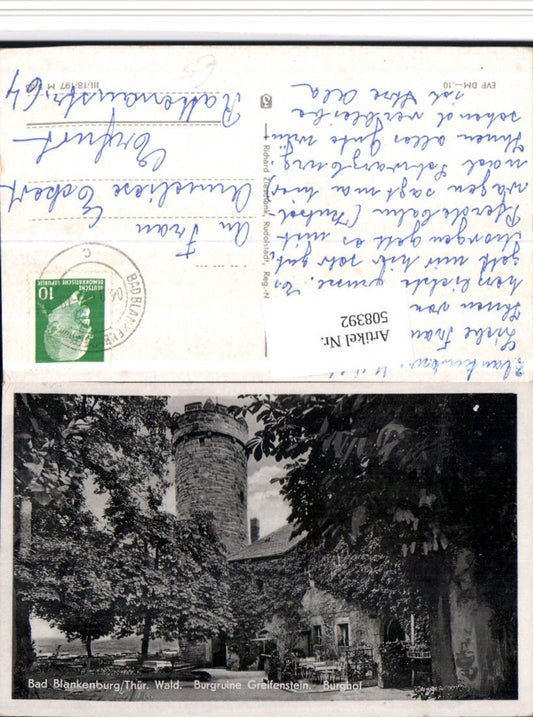 Blankenburg
Liebe Frau
Ihnen von
herzlichste Grüsse. Es
geht mir hier sehr gut
Morgen geht es mit
Pferdebahn (Kutsch-
wagen sagt man hier
nach Schwarzburg
Ihnen alles Gute wün
schend verbleibe
ich Ihre Ala
An Frau
Anneliese Eckert
Erfurt
Rathenaustr. 64
DEUTSCHE
DEMOKRATISCHE REPUBLIK
10
BAD BLANKENBURG
C
EVP DM -.10
III/18/197
Rudolstadt, Reg.-N
Artikel Nr.
508392
Bad Blankenburg/Thür. Wald. Burgruine Greifenstein. Burghof